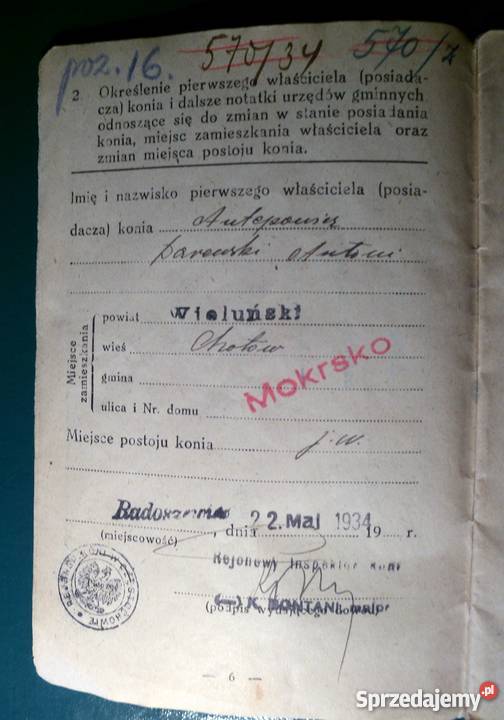 poz. 16. 570/34 570/z
2. Określenie pierwszego właściciela (posiada-
cza) konia i dalsze notatki urzędów gminnych
odnoszące się do zmian w stanie posiadania
konia, miejsc zamieszkania właściciela oraz
zmian miejsca postoju konia.
Imię i nazwisko pierwszego właściciela (posia-
dacza) konia
Antoni
Miejsce
zamieszkania
powiat Wieluński
wieś Chotów
gmina Mokrsko
ulica i Nr. domu
Miejsce postoju konia j.w.
Radoszewice, dnia 22. Maj 1934 19 r.
(miejscowość)
Rejonowy Inspektor Koni
(—) K. BONTANI major
(podpis wydającego dowód)
— 6 —
Sprzedajemy.pl